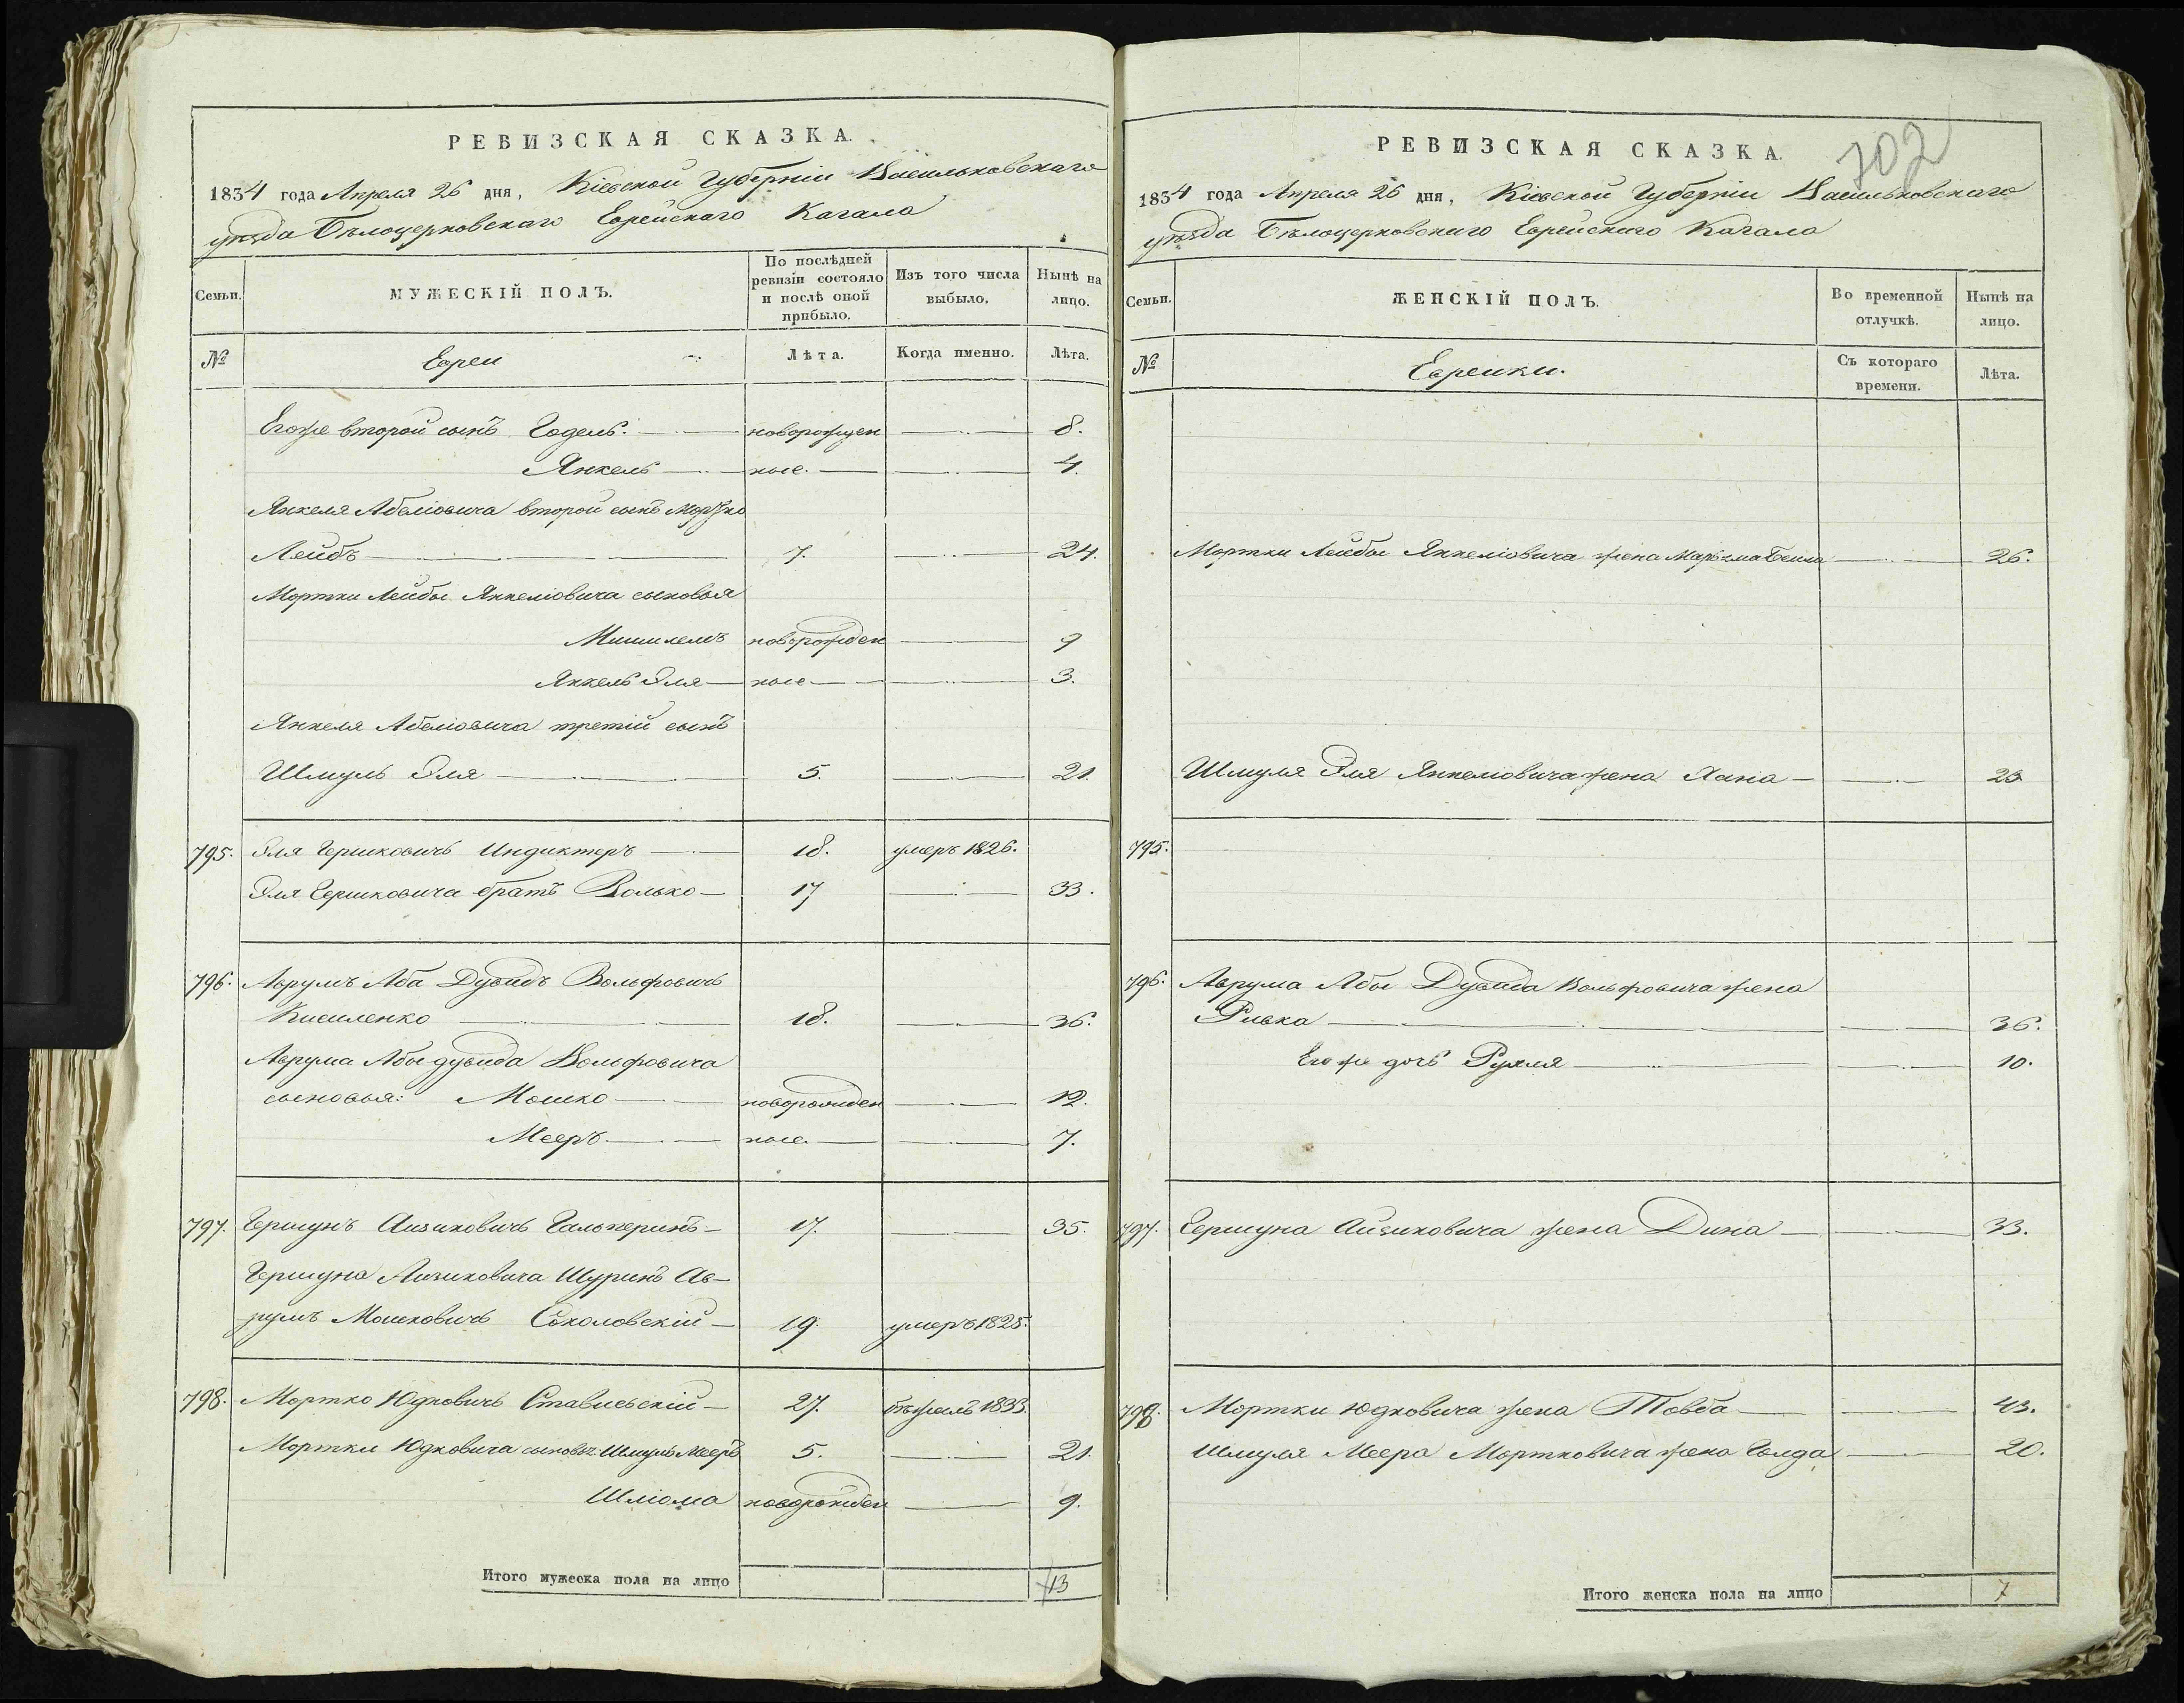 РЕВИЗСКАЯ СКАЗКА.
1834 года Апреля 26 дня, Кіевской Губерніи Васильковскаго
уѣзда Бѣлоцерковскаго Еврейскаго Кагала
Семьи.
МУЖЕСКІЙ ПОЛЪ.
По послѣдней
ревизіи состояло
и послѣ оной
прибыло.
Изъ того числа
выбыло.
Нынѣ на
лицо.
№
Евреи
Лѣта.
Когда именно.
Лѣта.
Егоже второй сынъ Годель. новорожден 8.
Янкель ные. 4.
Янкеля Абеліовича второй сынъ Мортко
Лейбъ 7. 24.
Мортки Лейбы Янкеліовича сыновья
Мишилемъ новорожден 9
Янкель Эля ные 3.
Янкеля Абеліовича третій сынъ
Шмуль Эля 5. 21.
795. Эля Гершковичъ Индиктеръ 18. умеръ 1826.
Эля Гершковича братъ Волько 17 33.
796. Аврумъ Аба Дувидъ Вольфовичъ
Кисиленко 18. 36.
Аврума Абы Дувида Вольфовича
сыновья: Мошко новорожден 12.
Мееръ ные. 7.
797. Гершунъ Айзиковичъ Гальперинъ 17. 35.
Гершуна Айзиковича Шуринъ Ав-
румъ Мошковичъ Соколовскій 19. умеръ 1825.
798. Мортко Юдковичъ Ставиский 27. бѣжалъ 1833.
Мортки Юдковича сыновья: Шмуль Мееръ 5. 21.
Шліома новорожден 9.
Итого мужеска пола на лицо 13
РЕВИЗСКАЯ СКАЗКА.
702
1834 года Апреля 26 дня, Кіевской Губерніи Васильковскаго
уѣзда Бѣлоцерковскаго Еврейскаго Кагала
Семьи.
ЖЕНСКІЙ ПОЛЪ.
Во временной
отлучкѣ.
Нынѣ на
лицо.
№
Еврейки.
Съ котораго
времени.
Лѣта.
Мортки Лейбы Янкеліовича жена Бейла 26.
Шмуля Эля Янкеліовича жена Хана 23
795.
796. Аврума Абы Дувида Вольфовича жена
Ривка 36.
Егоже дочь Рухля 10.
797. Гершуна Айзиковича жена Дина 33.
798. Мортки Юдковича жена Товба 43.
Шмуля Меера Мортковича жена Голда 20.
Итого женска пола на лицо 7